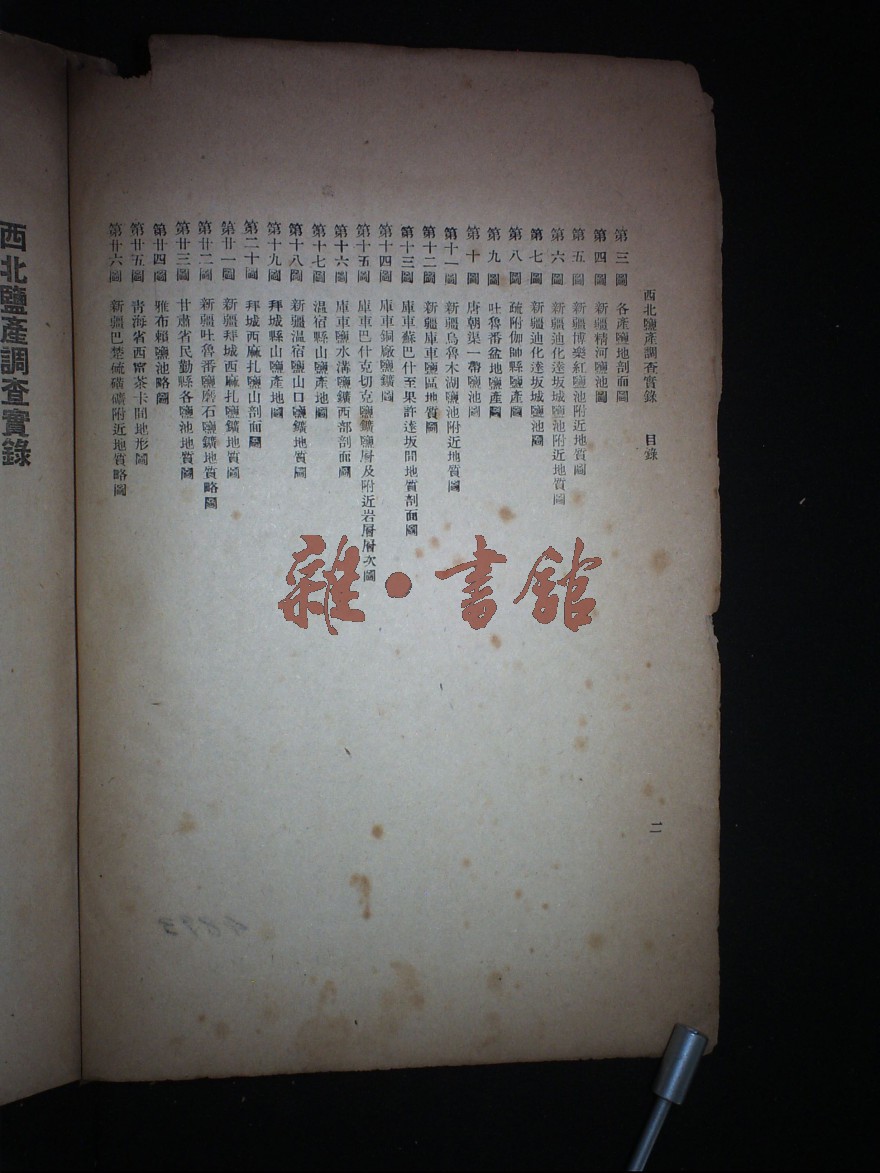 西北鹽產調查實錄 目錄
二
第三圖 各產鹽地剖面圖
第四圖 新疆精河鹽池圖
第五圖 新疆博樂紅鹽池附近地質圖
第六圖 新疆迪化達坂城鹽池附近地質圖
第七圖 新疆迪化達坂城鹽池圖
第八圖 疏附伽師縣鹽產圖
第九圖 吐魯番盆地鹽產圖
第十圖 唐朝渠一帶鹽池圖
第十一圖 新疆烏魯木湖鹽池附近地質圖
第十二圖 新疆庫車鹽區地質圖
第十三圖 庫車蘇巴什至果許達坂間地質剖面圖
第十四圖 庫車銅廠鹽鑛圖
第十五圖 庫車巴什克切克鹽鑛鹽層及附近岩層層次圖
第十六圖 庫車鹽水溝鹽鑛西部剖面圖
第十七圖 溫宿縣山鹽產地圖
第十八圖 新疆溫宿鹽山口鹽鑛地質圖
第十九圖 拜城縣山鹽產地圖
第二十圖 拜城西麻扎鹽山剖面圖
第廿一圖 新疆拜城西麻扎鹽鑛地質圖
第廿二圖 新疆吐魯番鹽磨石鹽鑛地質略圖
第廿三圖 甘肅省民勤縣各鹽池地質圖
第廿四圖 雅布賴鹽池略圖
第廿五圖 青海省西甯茶卡間地形圖
第廿六圖 新疆巴楚硫磺礦附近地質略圖
西北鹽產調查實錄
雜·書館